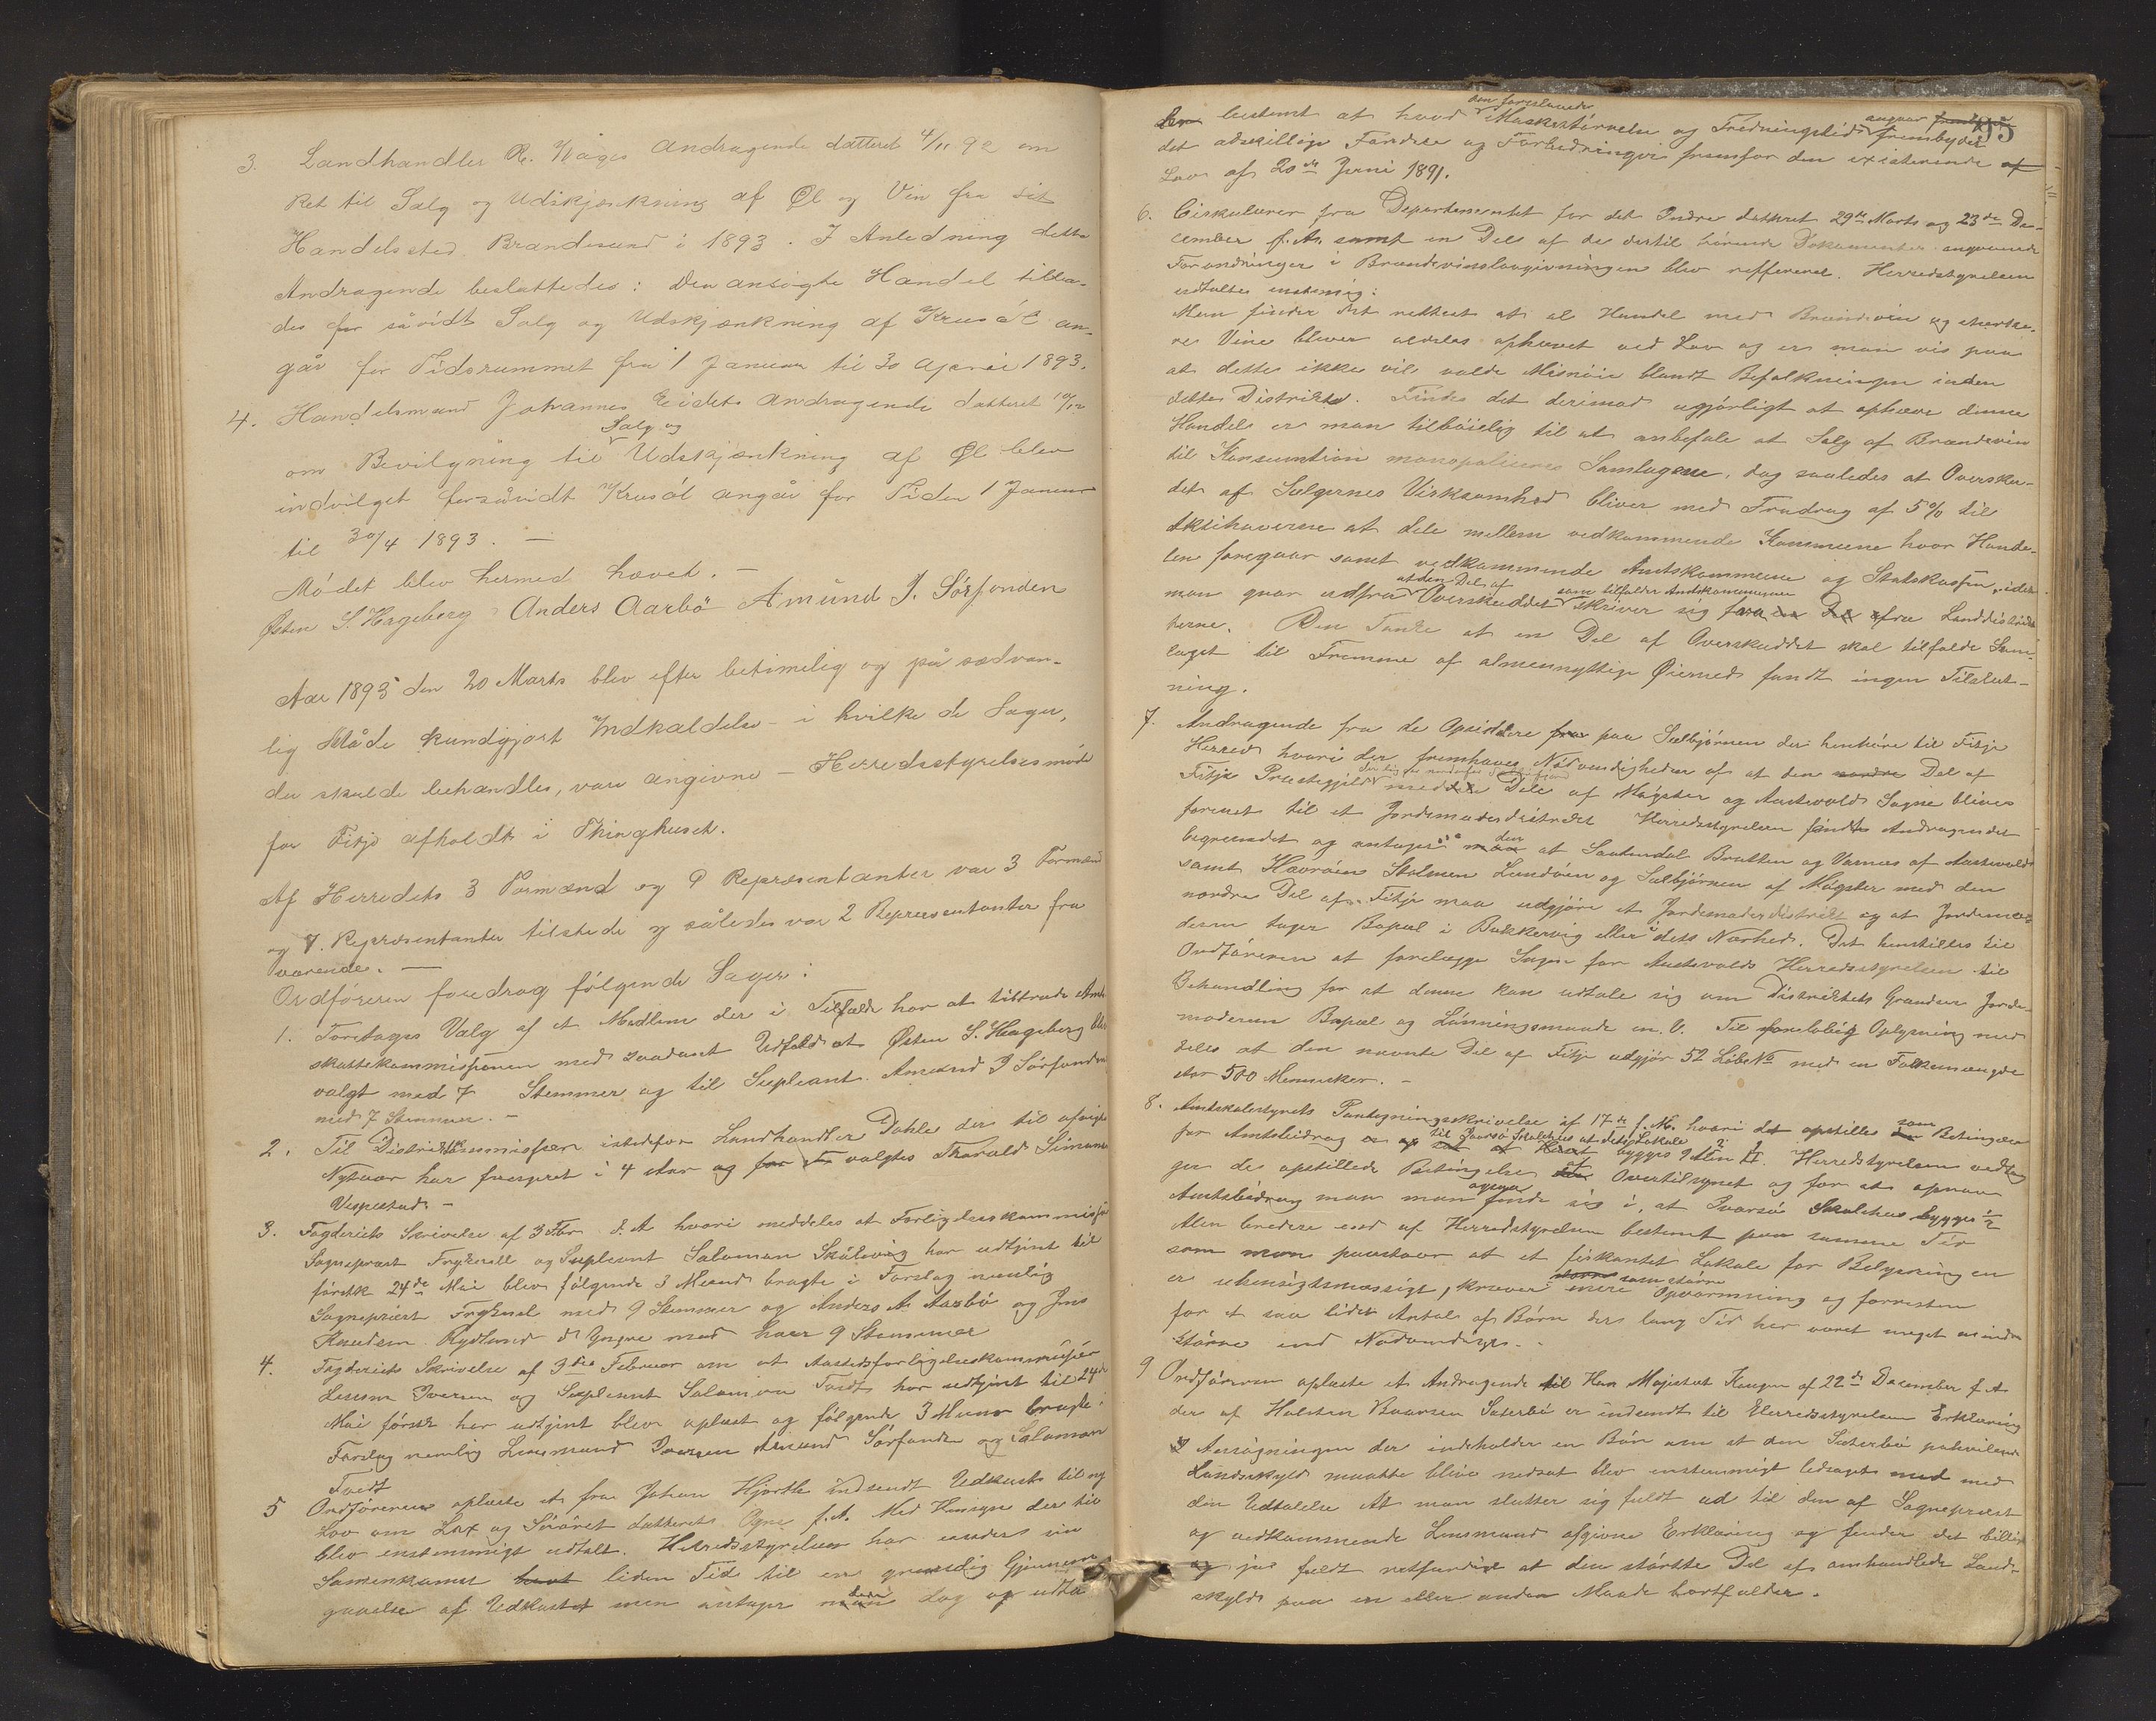 3. Landhandler R. Wåges Andragende datteret 4/11 92 om
Ret til Salg og Udskjænkning af Øl og Vin fra sit
Handelssted Brandesund i 1893. I Anledning dette
Andragende besluttedes: Den ansøgte Handel tilla-
des for såvidt Salg og Udskjænkning af Krusøl an-
går for Tidsrummet fra 1 Januar til 30 April 1893.
4. Handelsmand Johannes Eidets Andragende datteret 10/12
om Bevilgning til Salg og Udskjænkning af Øl blev
indvilget forsåvidt Krusøl angår for Tiden 1 Januar
til 30/4 1893. —
Mødet blev hermed hævet. —
Østen S. Hageberg Anders Aarbø Amund J. Sørfonden
Aar 1893 den 20 Marts blev efter betimelig og på sædvan-
lig Måde kundgjort Indkaldelse – i hvilke de Sager,
der skulde behandles, vare angivne – Herredsstyrelsesmøde
for Fitje afholdt i Thinghuset.
Af Herredets 3 Formænd og 9 Repræsentanter var 3 Formænd
og 7. Repræsentanter tilstede og således var 2 Repræsentanter fra
værende. —
Ordføreren foredrog følgende Sager:
1. Foretoges Valg af et Medlem der i Tilfælde har at tiltræde Amts
skattekommissionen med saadant Udfald at Østen S. Hageberg blev
valgt med 7 Stemmer og til Supleant Amund J Sørfonden
med 7 Stemmer. —
2. Til Distriktskommissær istedetfor Landhandler Dahle der til afvigte
Nytaar har fungeret i 4 Aar og valgtes Thorvald Simonsen
Vespestad. —
3. Fogderiets Skrivelse af 3 Febr. d. A hvori meddeles at Forligelseskommissær
Sogneprest Frÿknell og Supleant Salamon Skålevig har udtjent til
førstk 24de Mai blev følgende 3 Mænd bragte i Forslag nemlig
Sogneprest Frÿknel med 9 Stemmer og Anders A. Aarbø og Jens
Knudsen Rydland d Yngre med hver 9 Stemmer
4. Fogderiets Skrivelse af 3die Februar om at Aastedsforligelseskommissær
Lensm Iversen og Supleant Salamon Tvedt har udtjent til 24de
Mai førstk har udtjent blev oplæst og følgende 3 Mænd bragte i
Forslag nemlig Lensmand Iversen Amund Sørfonden og Salamon
Tvedt
5 Ordføreren oplæste et fra Johan Hjorth indsendt Udkast til ny
Lov om Lax og Søøret datteret f. A. Med Hensyn der til
blev enstemmigt udtalt. Herredsstyrelsen har endnu sin
Samenkomst liden Tid til en grundig Gjennem
gaaelse af Udkastet men antager dem dog og udta
95
bestemt at hvad den foreslaaede Maskestørrelse og Fredningstid angaar frembyder
det adskillige Fordele og Forbedringer fremfor den existerende
Lov af 20de Juni 1891.
6. Cirkulærer fra Departementet for det Indre datteret 29de Marts og 23de De-
cember f. A. samt en Del af de dertil hørende Dokumenter angaaende
Forandringer i Brændevinslovgivningen blev reffereret. Herredstyrelsen
udtalte enstemig:
Man finder det rettest at al Handel med Brændevin og sterke-
re Vine bliver aldeles ophævet ved Lov og er man vis paa
at dette ikke vil volde Misnøie blandt Befolkningen inden
dette Distrikt. Findes det derimod ugjørligt at ophæve denne
Handel er man tilbøielig til at anbefale at Salg af Brændevin
til Konsumtion monopoliseres Samlagene, dog saaledes at Oversku-
det af Salgernes Virksomhed bliver med Fradrag af 5% til
Aktiehaverne at dele mellem vedkommende Kommune hvor Hande-
len foregaar samt vedkommende Amtskommune og Statskassen, idet
man gaar udfra at den Del af Overskuddet som tilfalder Amtskommunen skriver sig fra Landdistrik
terne. Den Tanke at en Del af Overskuddet skal tilfalde Sam-
laget til Fremme af almennyttige Øiemed fandt ingen Tilslut-
ning.
7. Andragende fra de Opsiddere paa Selbjørnen der henhøre til Fitje
Herred hvori der fremhæves Nødvendigheden af at den Del af
Fitje Præstegjeld med Dele af Møgster og Austevold Sogne bliver
forenet til et Jordemoderdistrikt Herredsstyrelsen fandt Andragendet
begrundet og antager den at Sandendal Brathen og Varnes af Austevold
samt Havrøen Stolmen Lundøen og Selbjørnen af Møgster med den
nordre Del af Fitje maa udgjøre et Jordemoderdistrikt og at Jordemo-
deren tager Bopæl i Bekkervig eller i dets Nærhed. Det henstilles til
Ordføreren at forelægge Sagen for Austevolds Herredsstyrelsen til
Behandling for at denne kan udtale sig om Distriktets Grændser Jorde-
moderens Bopæl og Lønningsmaade m. V. Til foreløbig Oplysning med
deles at den nævnte Del af Fitje udgjør 52 Løbe No med en Folkemængde
stor 500 Mennesker. —
8. Amtskolestyrets Pantegningsskrivelse af 17de f. M. hvori det opstilles som Betingelse
for Amtsbidrag til Ivarsø Skolehus at dets Lokale bygges 9 Alen. Herredstyrelsen vedtog
den opstillede Betingelse Overtilsynet og for at opnaa
Amtsbidrag maa man ogsaa finde sig i, at Ivarsø Skolehus bygges 1/2
Alen bredere end af Herredstyrelsen bestemt paa samme Tid
som man paastaar at et firkantet Lokale for Belysningen
er uhensigtsmæssigt, kræver mere Opvarmning og forresten
for et saa lidet Antal af Børn der lang Tid har været meget mindre
større end Nødvendigt. —
9 Ordføreren oplæste et Andragende til Hans Majestæt Kongen af 22de December f. A
der af Halsten Baarsen Sæterbø er indsendt til Herredsstyrelsens Erklæring
Ansøgningen der indeholder en Bøn om at den Sæterbø paahvilende
Landskyld maatte blive nedsat blev enstemmigt ledsaget med
den Udtalelse At man slutter sig fuldt ud til den af Sogneprest
og vedkommende Lensmand afgivne Erklæring og finder det billigt
og jae fuldt retfærdigt at den største Del af omhandlede Land-
skyld paa en eller anden Maade bortfalder.